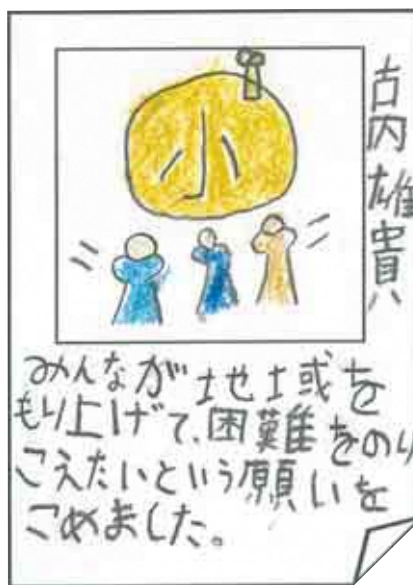 古内雄貴
小
みんなが地域を
もり上げて、困難をのり
こえたいという願いを
こめました。